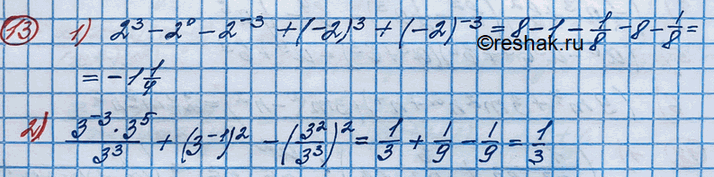 13 1) 2³ - 2⁰ - 2⁻³ + (-2)³ + (-2)⁻³ = 8 - 1 - 1/8 - 8 - 1/8 =
©reshak.ru
= -1 1/9
2) (3⁻³ · 3⁵)/3³ + (3⁻¹)² - (3²/3³)² = 1/3 + 1/9 - 1/9 = 1/3